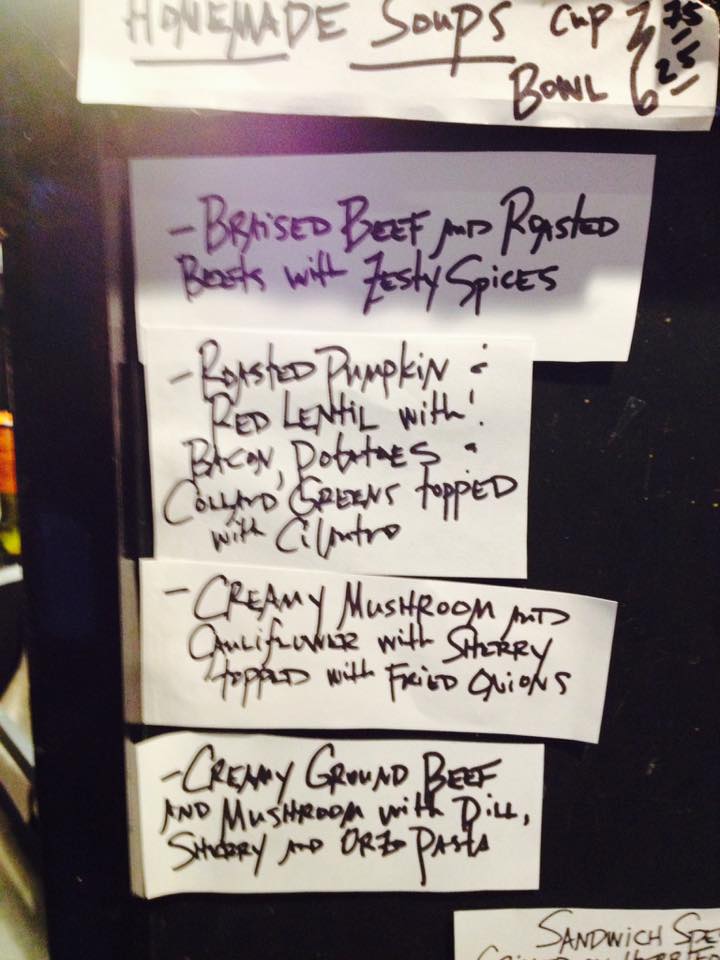 HOMEMADE SOUPS CUP 3.75
BOWL 6.25
- BRAISED BEEF AND ROASTED
BEETS with ZESTY SPICES
- ROASTED PUMPKIN &
RED LENTIL with
BACON, POTATOES &
COLLARD GREENS topped
with Cilantro
- CREAMY MUSHROOM AND
CAULIFLOWER with SHERRY
topped with FRIED ONIONS
- CREAMY GROUND BEEF
AND MUSHROOM with DILL,
SHERRY AND ORZO PASTA
SANDWICH SPE